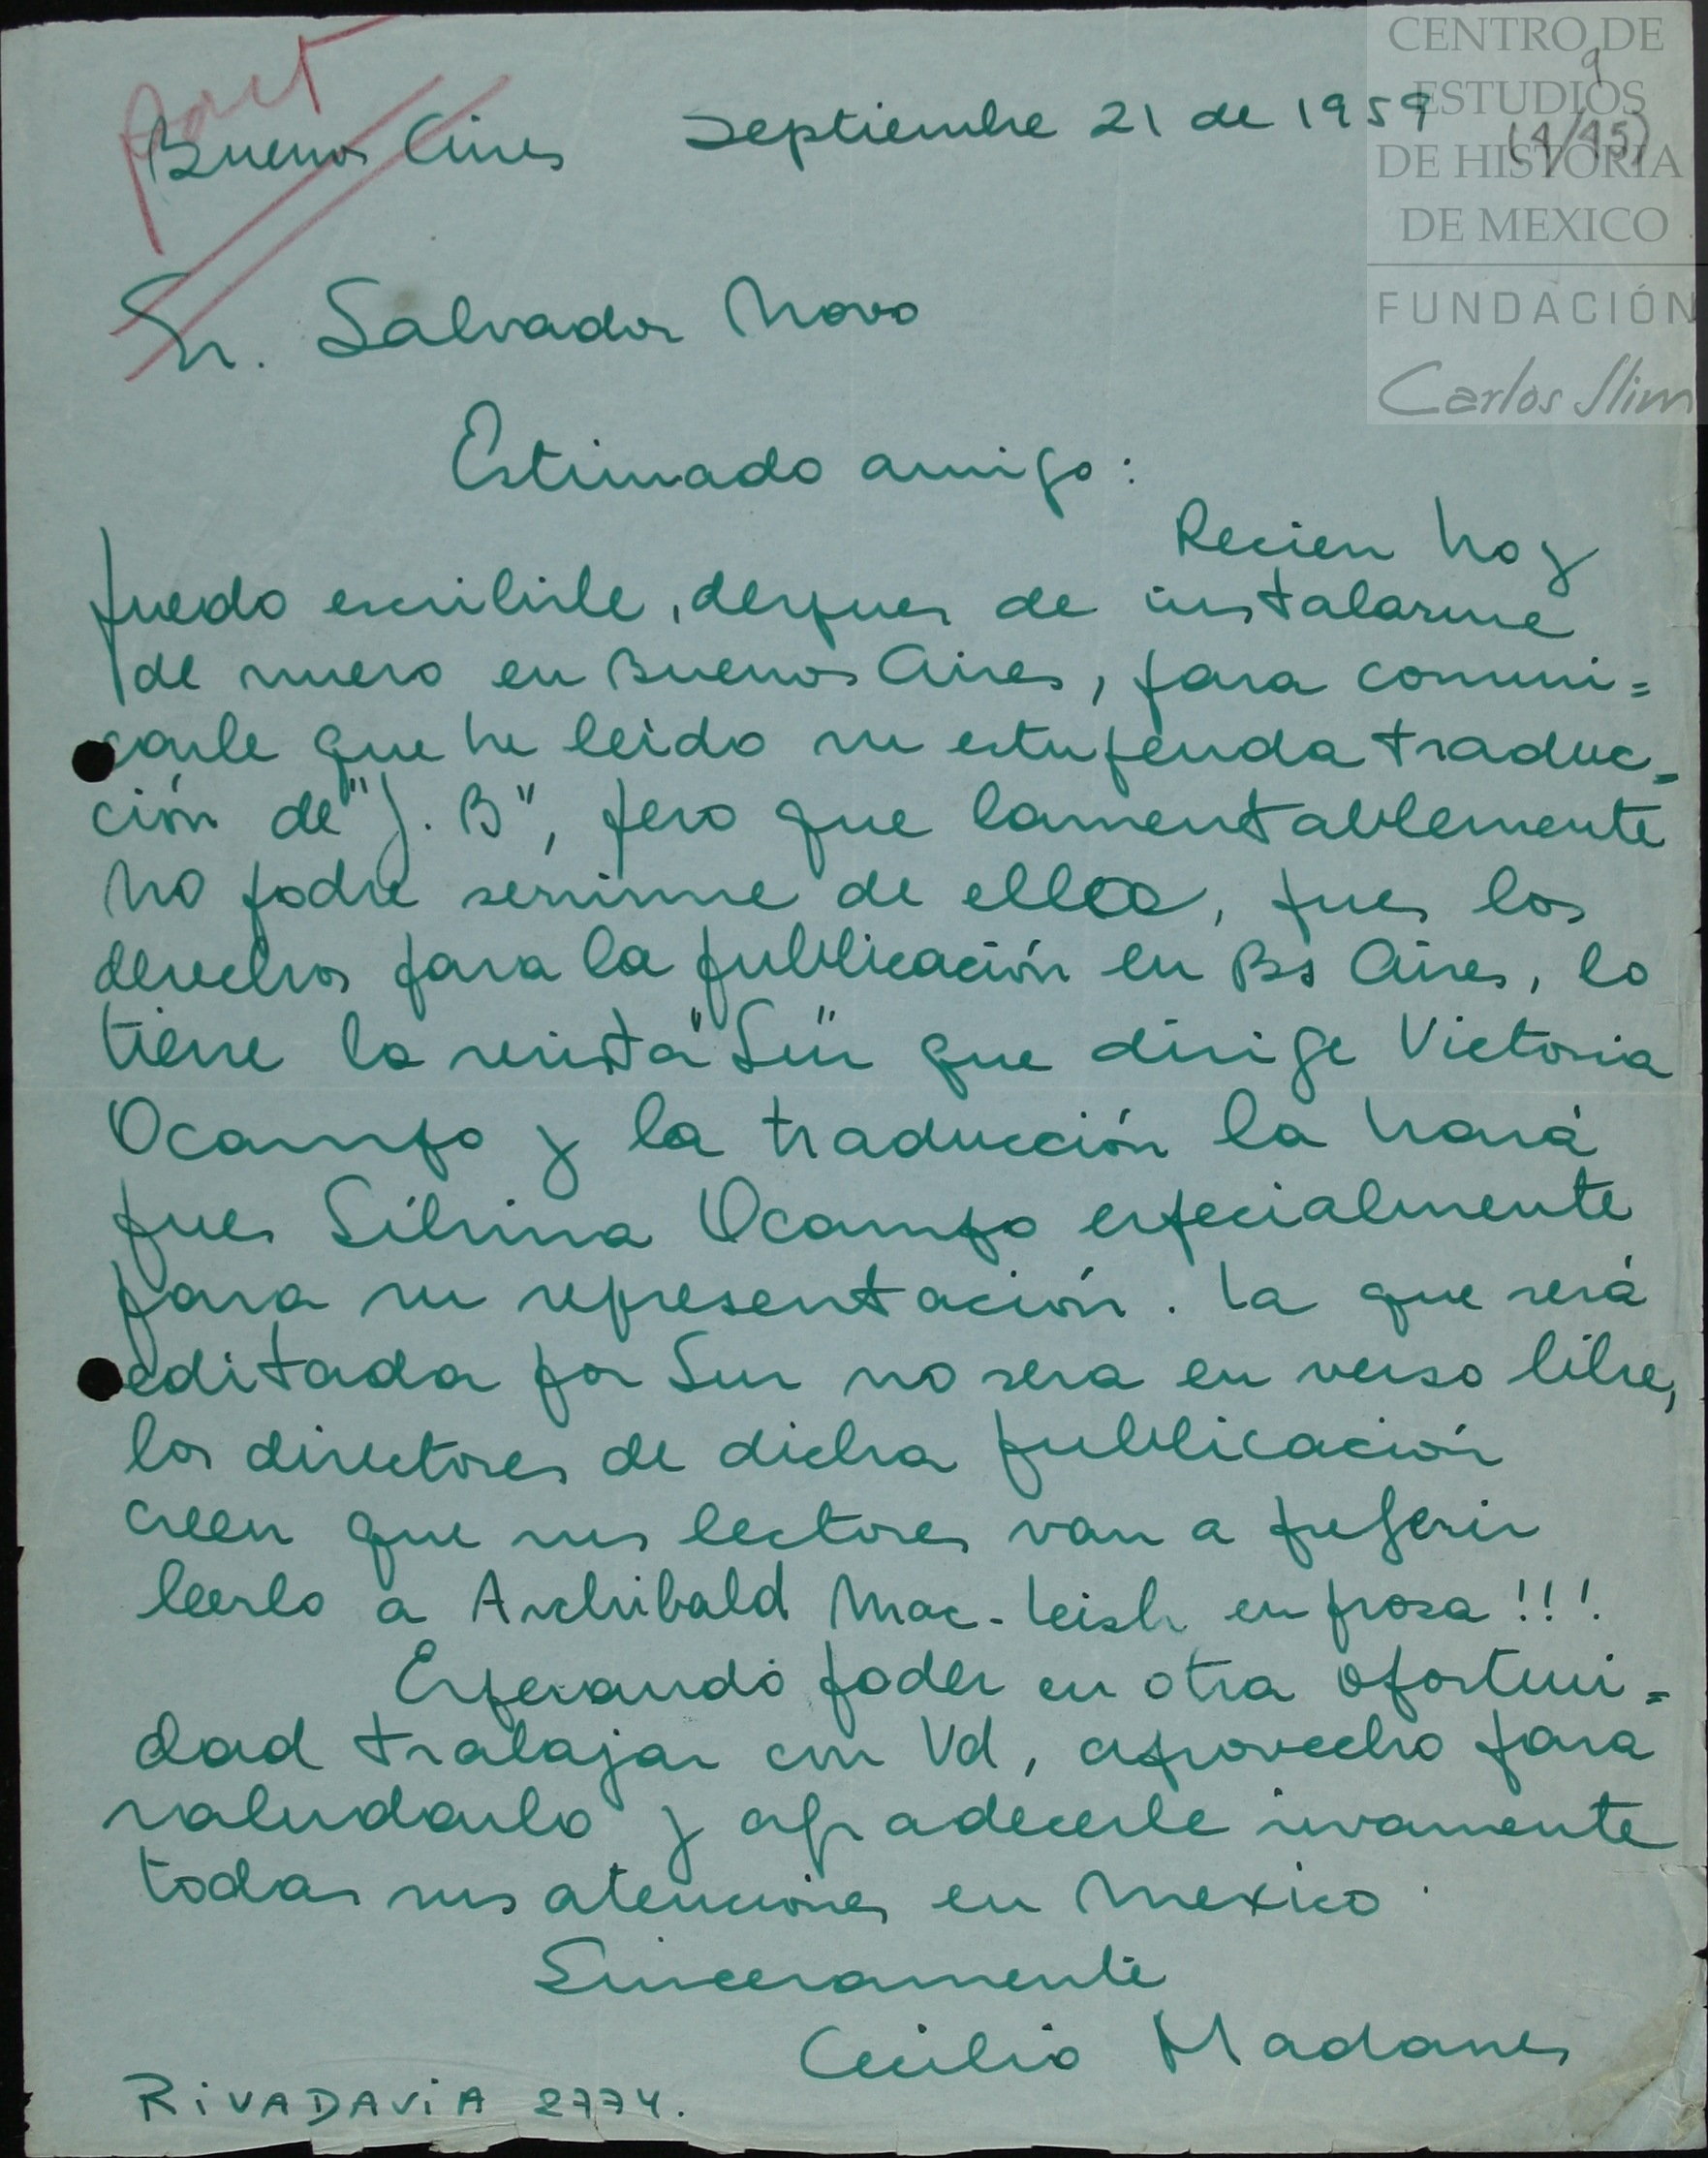 CENTRO DE
ESTUDIOS
DE HISTORIA
DE MEXICO
FUNDACIÓN
Carlos Slim
9
(4/45)
Buenos Aires Septiembre 21 de 1959
Sr. Salvador Novo
Estimado amigo:
Recien hoy
puedo escribirle, despues de instalarme
de nuevo en Buenos Aires, para comuni=
carle que he leido su estupenda traduc=
ción de "J. B", pero que lamentablemente
no podre servirme de ella, pues los
derechos para la publicación en Bs Aires, lo
tiene la revista "Sur" que dirige Victoria
Ocampo y la traducción la hará
pues Silvina Ocampo especialmente
para su representación. La que será
editada por Sur no sera en verso libre,
los directores de dicha publicación
creen que sus lectores van a preferir
leerlo a Archibald Mac-Leish en prosa!!!
Esperando poder en otra oportuni=
dad trabajar con Vd, aprovecho para
saludarlo y agradecerle vivamente
todas sus atenciones en Mexico.
Sinceramente
Cecilio Madanes
RIVADAVIA 2774.